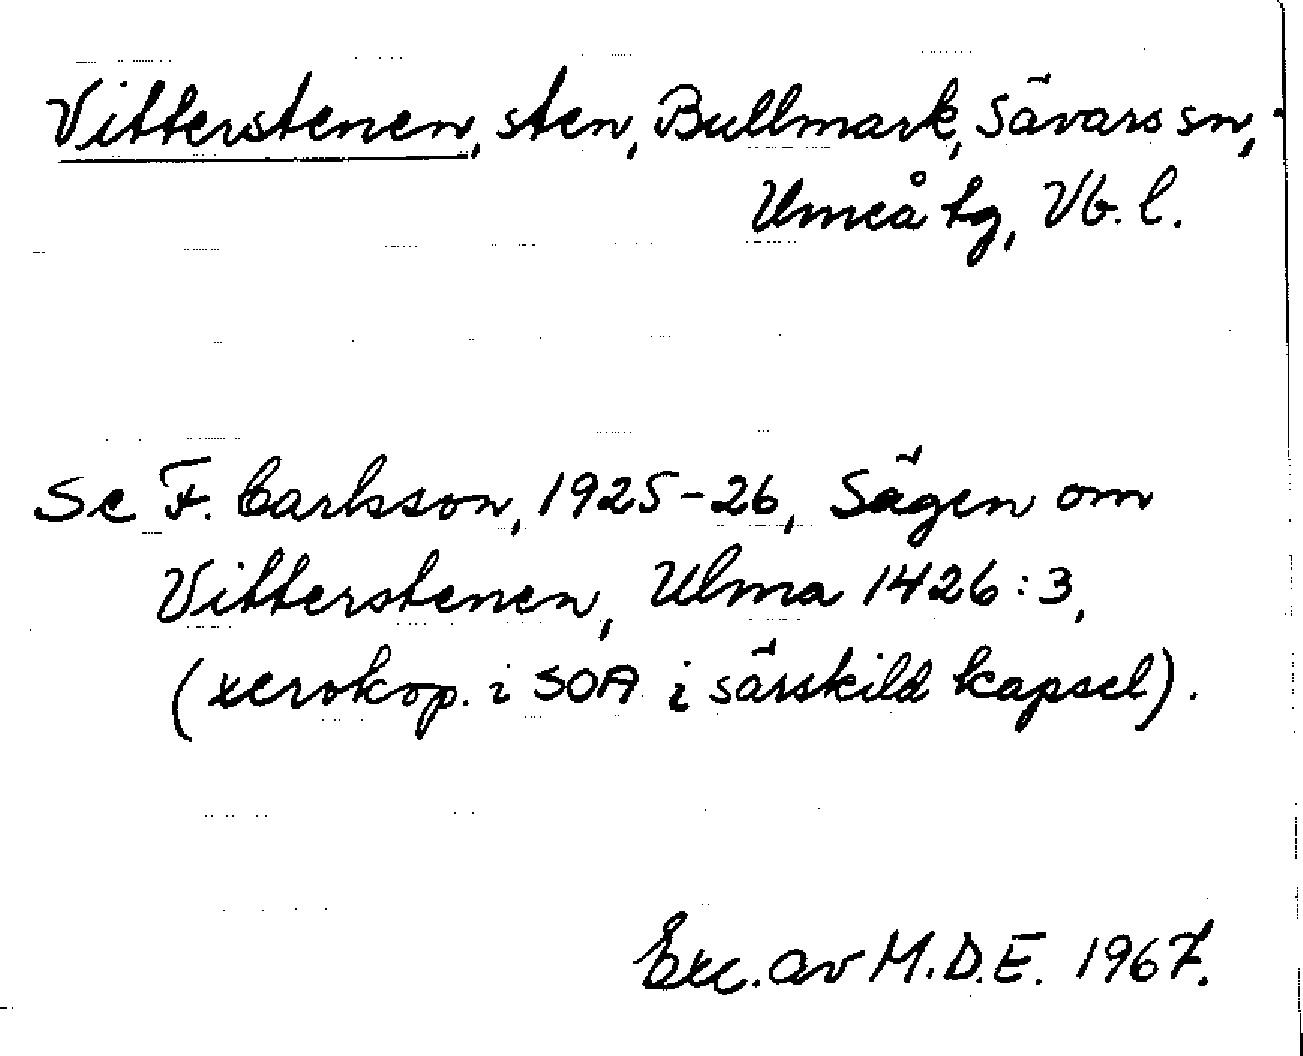 Vitterstenen, sten, Bullmark, Sävars sn,
Umeå tg, Vb. l.
Se F. Carlsson, 1925-26, Sägen om
Vitterstenen, Ulma 1426:3,
(xerokop. i SOA i särskild kapsel).
Exc. av M.D.E. 1967.